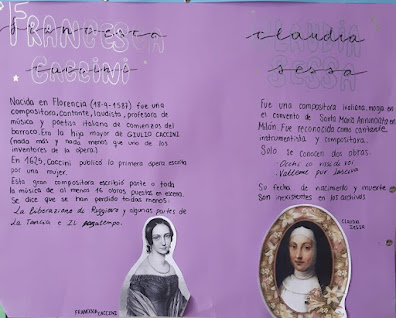 FRANCESCA
CACCINI
francesca
caccini
Nacida en Florencia (18-9-1587) fue una
compositora, cantante, laudista, profesora de
música y poetisa italiana de comienzos del
barroco. Era la hija mayor de GIULIO CACCINI
(nada más y nada menos que uno de los
inventores de la ópera)
En 1625, Caccini publicó la primera ópera escrita
por una mujer.
Esta gran compositora escribió parte o toda
la música de al menos 16 obras puestas en escena.
Se dice que se han perdido todas menos:
La liberazione de Ruggiero y algunas partes de
La Tancia e Il passatempo.
FRANCESCA CACCINI
CLAUDIA
SESSA
claudia
sessa
Fue una compositora italiana, monja en
el convento de Santa María Annunciata en
Milán. Fue reconocida como cantante,
instrumentista y compositora.
Solo se conocen dos obras:
- Occhi io vissi di voi
- Vattene pur lasciva
Su fecha de nacimiento y muerte
son inexistentes en los archivos
CLAUDIA
SESSA